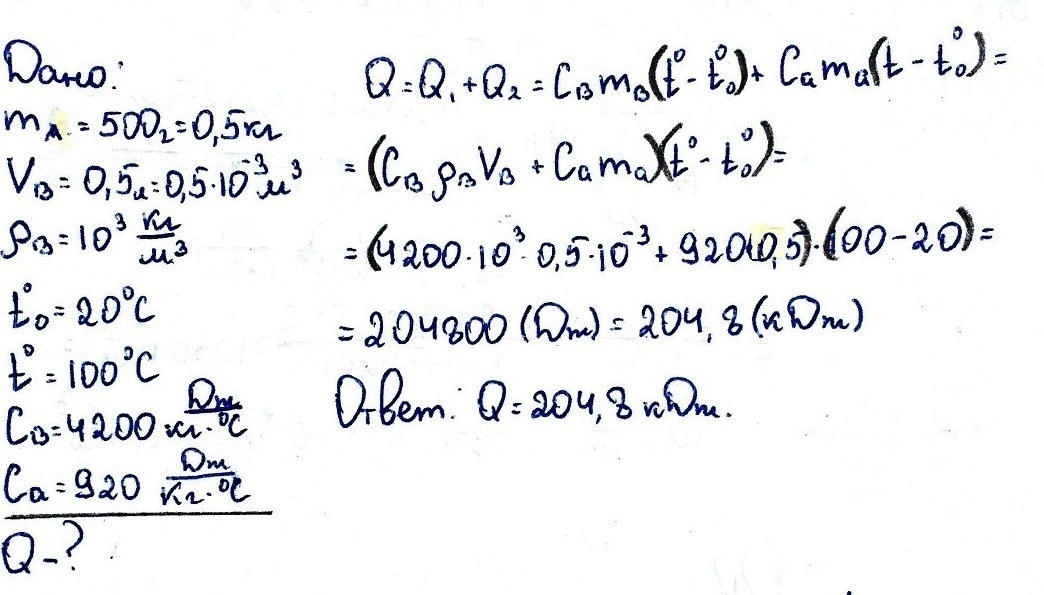 Дано:
mₐ = 500г = 0,5кг
Vв = 0,5л = 0,5·10⁻³м³
ρв = 10³ кг/м³
t°₀ = 20°C
t° = 100°C
Cв = 4200 Дж/кг·°C
Cа = 920 Дж/кг·°C
Q - ?
Q = Q₁ + Q₂ = Cв mв (t° - t°₀) + Cа mа (t - t°₀) =
= (Cв ρв Vв + Cа mа)(t° - t°₀) =
= (4200·10³·0,5·10⁻³ + 920·0,5)·(100 - 20) =
= 204800 (Дж) = 204,8 (кДж)
Ответ: Q = 204,8 кДж.